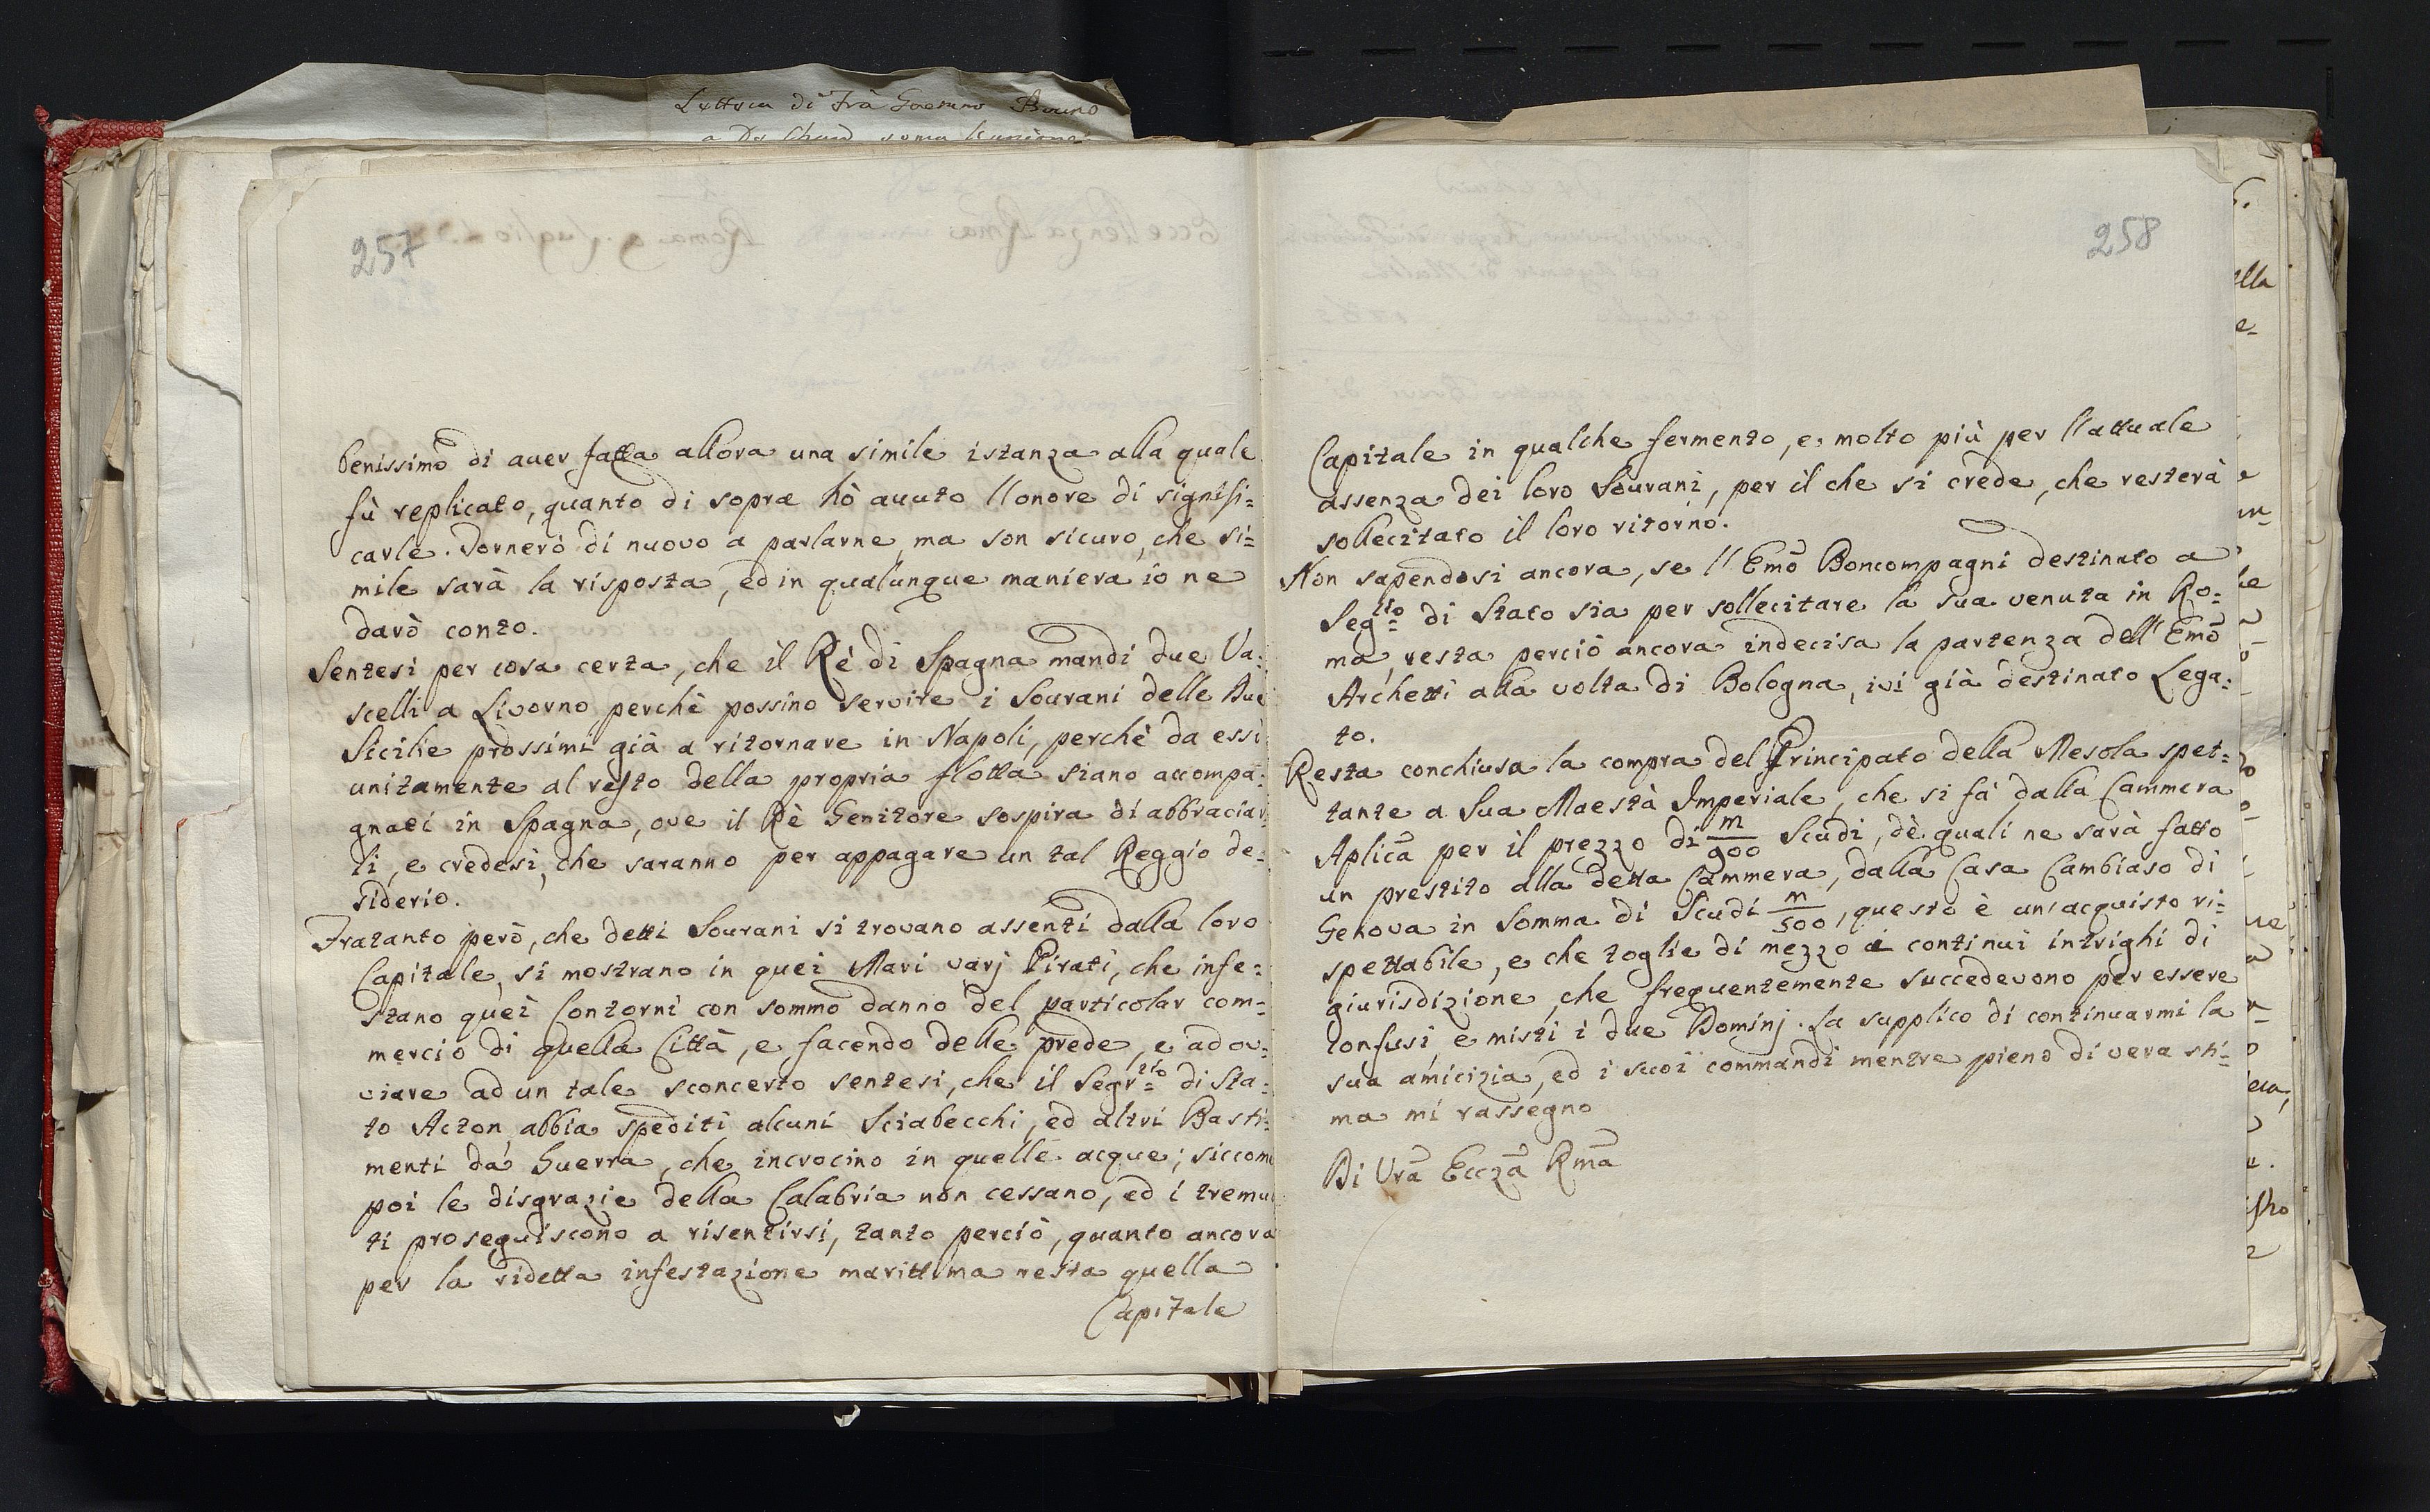 Lettera di Frà Gaetano Bruno
257
benissimo di auer fatta allora una simile istanza alla quale
fù replicato, quanto di sopra hò auuto l'onore di signifi=
carle. Tornerò di nuovo a parlarne, ma son sicuro, che si=
mile sarà la risposta, ed in qualunque maniera io ne
darò conto.
Sentesi per cosa certa, che il Rè di Spagna mandi due Va=
scelli a Livorno perchè possino servire i Sourani delle Due
Sicilie prossimi già a ritornare in Napoli, perchè da essi
unitamente al resto della propria flotta siano accompa=
gnati in Spagna, oue il Rè Genitore sospira di abbraciar=
li, e credesi, che saranno per appagare un tal Reggio de=
siderio.
Fratanto però, che detti Sourani si trouano assenti dalla loro
Capitale, si mostrano in quei Mari varj Pirati, che infe=
stano quei Contorni con sommo danno del particolar com=
mercio di quella Città, e facendo delle prede, e ad ov=
viare ad un tale sconcerto sentesi, che il Segr:rio di Sta=
to Acton abbia spediti alcuni Sciabecchi, ed altri Basti=
menti da Guerra, che incrocino in quelle acque; siccome
poi le disgrazie della Calabria non cessano, ed i tremu
ti proseguiscono a risentirsi, tanto perciò, quanto ancora
per la ridetta infestazione marittima resta quella
Capitale
258
Capitale in qualche fermento, e molto più per l'attuale
assenza dei loro Sourani, per il che si crede, che resterà
sollecitato il loro ritorno.
Non sapendosi ancora, se l'Emõ Boncompagni destinato a
Seg:rio di Stato sia per sollecitare la sua venuta in Ro=
ma, resta perciò ancora indecisa la partenza dell'Emõ
Archetti alla volta di Bologna, ivi già destinato Lega=
to.
Resta conchiusa la compra del Principato della Mesola spet=
tante a Sua Maestà Imperiale, che si fà dalla Cammera
Aplicã per il prezzo di m/900 Scudi, dè quali ne sarà fatto
un prestito alla detta Cammera, dalla Casa Cambiaso di
Genova in Somma di Scudi m/500, questo è un'acquisto ri=
spettabile, e che toglie di mezzo i continui intrighi di
giurisdizione, che frequentemente succedevono per essere
confusi, e misti i due Dominj. La supplico di continuarmi la
sua amicizia, ed i suoi commandi mentre pieno di vera sti=
ma mi rassegno
Di Vrã Ecczã Rmã